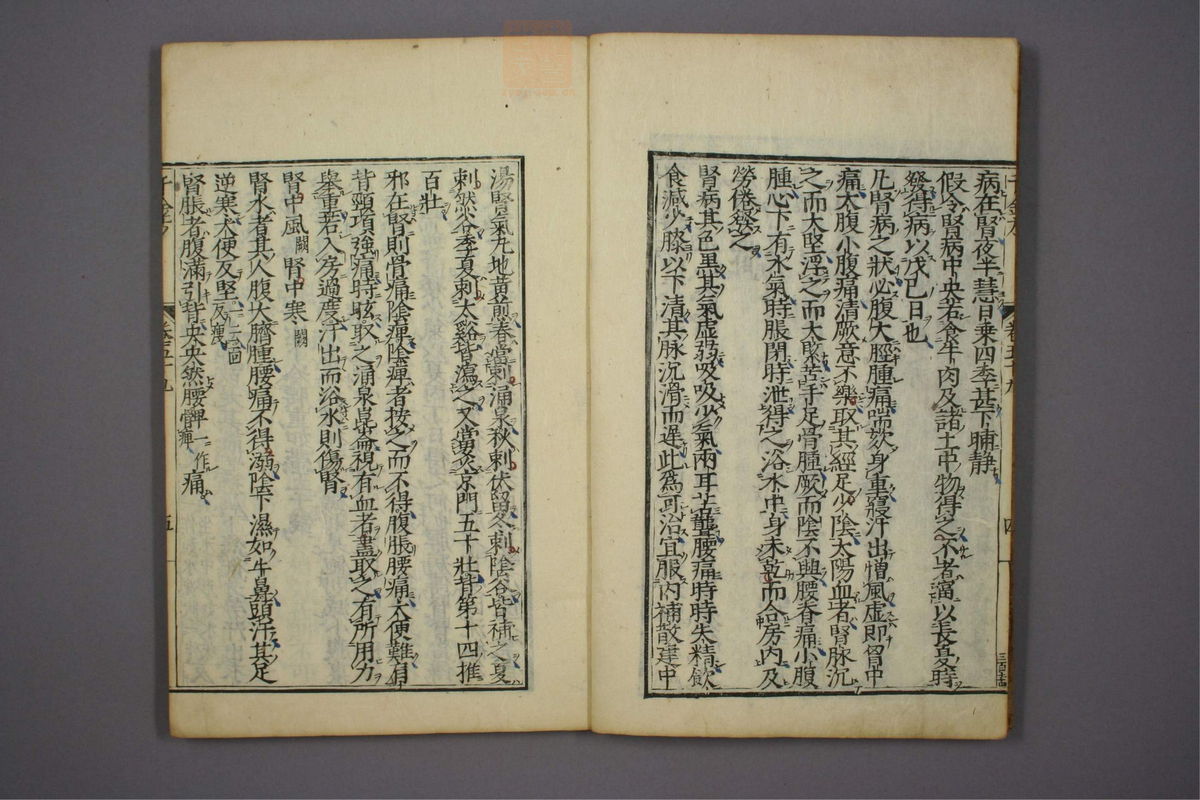 病在腎夜半慧日乗四季甚下晡静
假令腎病中央若食牛肉及諸土中物得之不者當以長夏時
發得病以戊巳日也
凡腎病之狀必腹大脛腫痛喘欬身重寢汗出憎風虚即胷中
痛大腹小腹痛清厥意不樂取其經足少陰太陽血者腎脉沉
之而大堅浮之而大緊苦手足骨腫厥而陰不興腰脊痛小腹
腫心下有水氣時脹閉時泄得之浴水中身未乾而合房内及
勞倦發之
腎病其色黒其氣虚弱吸吸少氣兩耳苦聾腰痛時時失精飲
食減少膝以下清其脉沉滑而遲此爲可治宜服内補散建中
卷五十九
四
湯腎氣丸地黄煎春當刺涌泉秋刺伏留冬刺陰谷皆補之夏
刺然谷季夏刺太谿皆瀉之又當灸京門五十壯背第十四推
百壯
邪在腎則骨痛陰痺陰痺者按之而不得腹脹腰痛大便難肩
背頸項強痛時眩取之涌泉崑崙視有血者盡取之有所用力
舉重若入房過度汗出而浴水則傷腎
腎中風闕腎中寒闕
腎水者其人腹大臍腫腰痛不得溺陰下濕如牛鼻頭汗其足
逆寒大便反堅一云面反瘦
腎脹者腹滿引背央央然腰髀一作痛
五